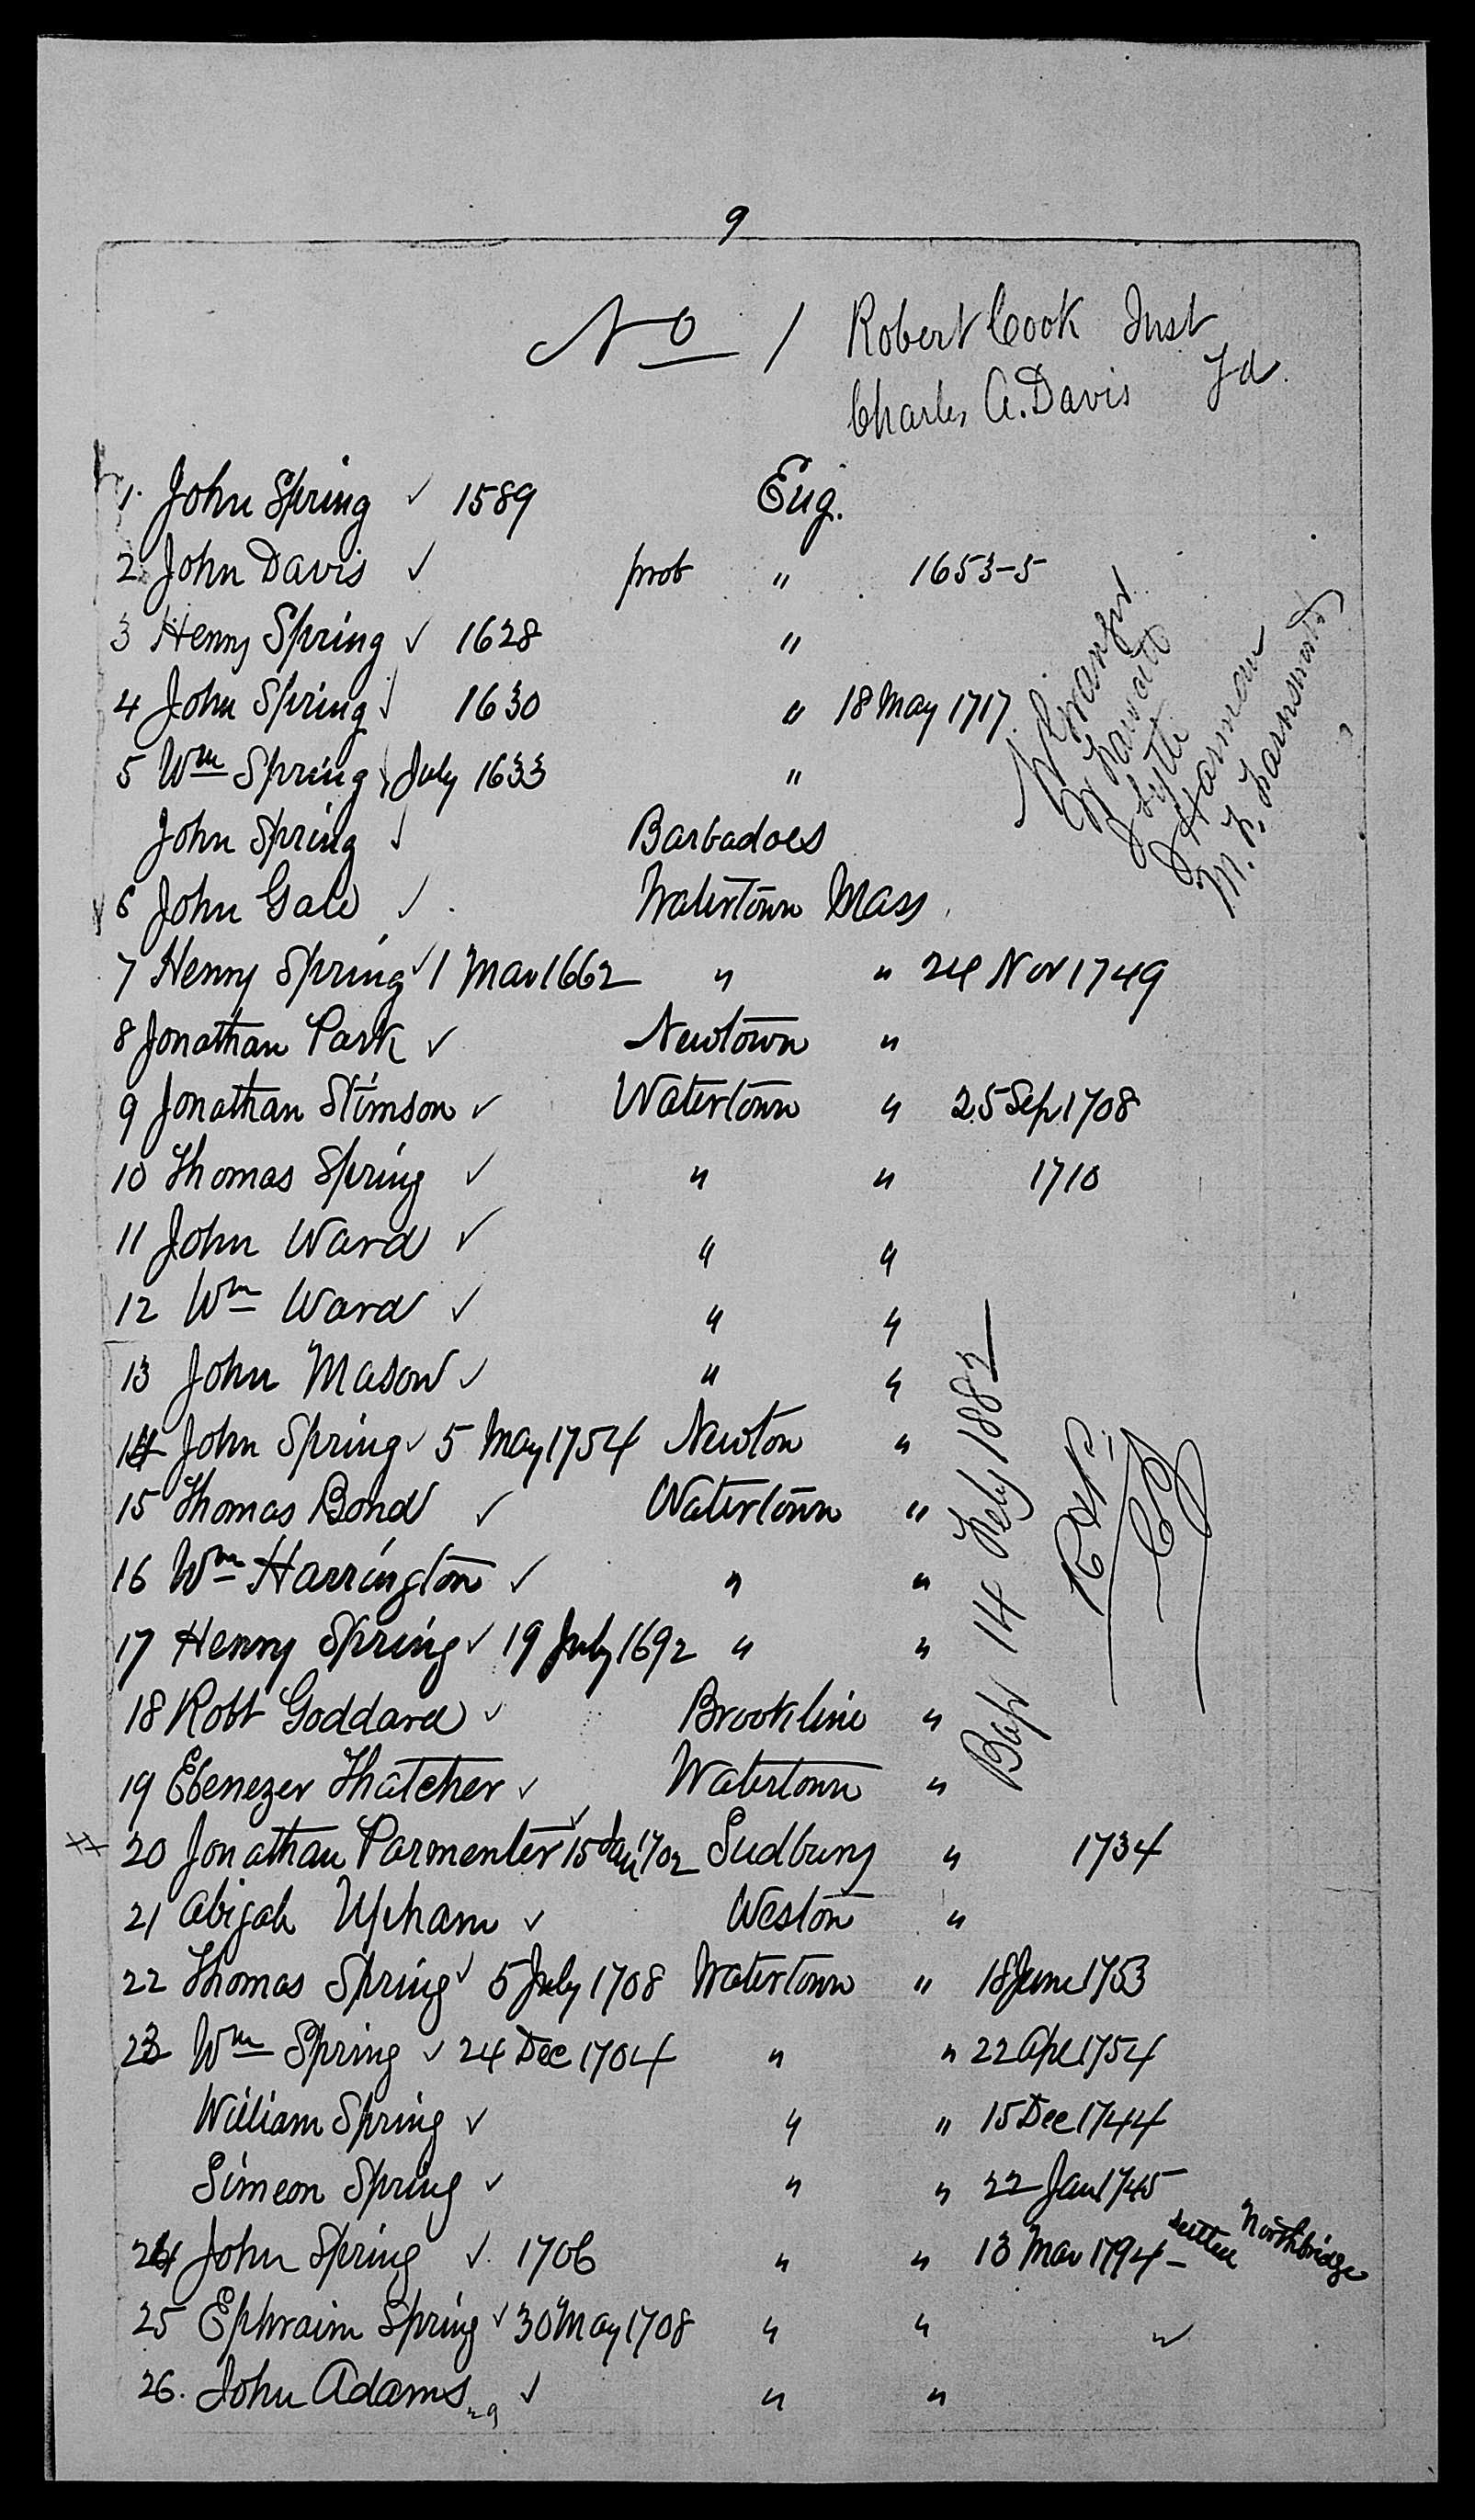 9
No 1 Robert Cook Inst
Charles A. Davis Yd.
1. John Spring ✓ 1589 Eng.
2. John Davis ✓ prob " 1653-5
3 Henry Spring ✓ 1628 "
4 John Spring ✓ 1630 " 18 May 1717
5 Wm Spring ✓ July 1633 "
John Spring ✓ Barbadoes
6 John Gale ✓ Watertown Mass.
7 Henry Spring ✓ 1 Mar 1662 " " 24 Nov 1749
8 Jonathan Park ✓ Newtown "
9 Jonathan Stimson ✓ Watertown " 25 Sep 1708
10 Thomas Spring ✓ " " 1710
11 John Ward ✓ " "
12 Wm Ward ✓ " "
13 John Mason ✓ " "
14 John Spring ✓ 5 May 1754 Newton "
15 Thomas Bond ✓ Watertown "
16 Wm Harrington ✓ " "
17 Henry Spring ✓ 19 July 1692 " "
18 Robt Goddard ✓ Brookline "
19 Ebenezer Thatcher ✓ Watertown "
20 Jonathan Parmenter ✓ 15 Jan 1702 Sudbury " 1734
21 Abijah Upham ✓ Weston "
22 Thomas Spring ✓ 5 July 1708 Watertown " 18 June 1753
23 Wm Spring ✓ 24 Dec 1704 " " 22 Apl 1754
William Spring ✓ " " 15 Dec 1744
Simeon Spring ✓ " " 22 Jan 1745
24 John Spring ✓ 1706 " " 13 Mar 1794 - Northbridge
25 Ephraim Spring ✓ 30 May 1708 " " "
26. John Adams ✓ " "
Harman
M. F. Farnsworth
Bap 14 Feby 1882